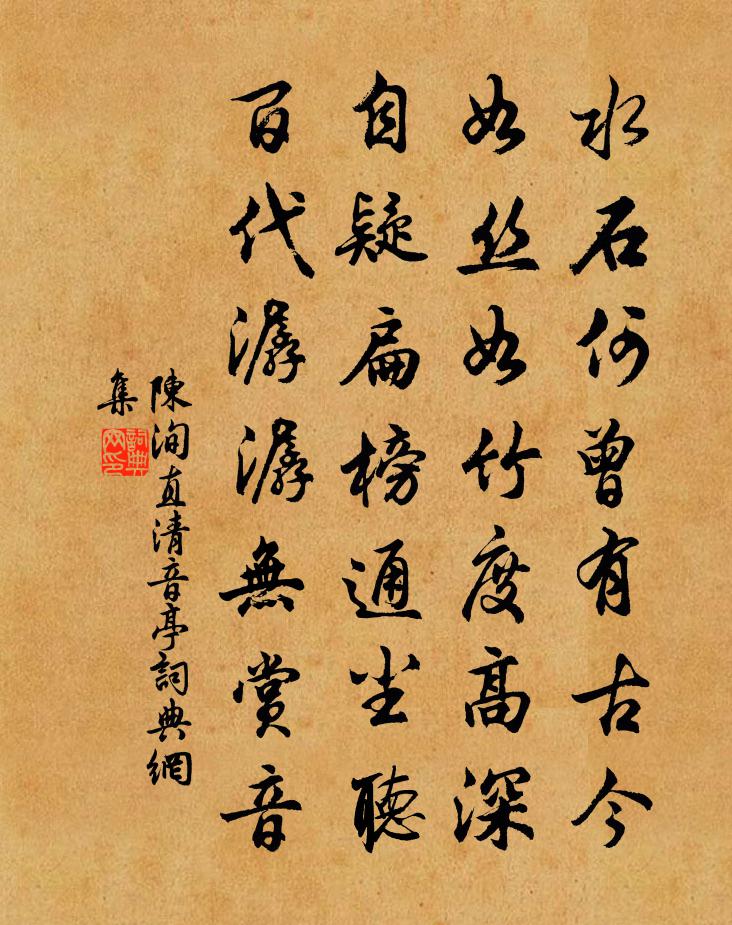 水石何曾有古今
如丝如竹度高深
自疑扁榜通坐聽
百代潺潺無賞音
陳洵直清音亭詞典網
集
詞典
网印